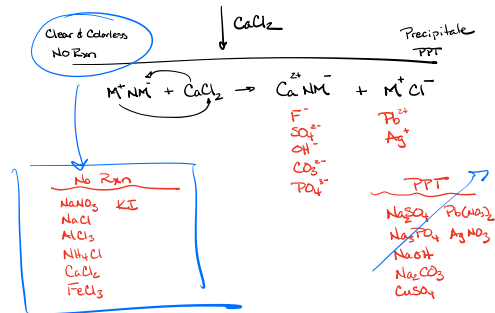 CaCl₂
Clear & Colorless
No Rxn
Precipitate
PPT
M⁺NM⁻ + CaCl₂ → Ca²⁺NM⁻ + M⁺Cl⁻
F⁻
SO₄²⁻
OH⁻
CO₃²⁻
PO₄³⁻
Pb²⁺
Ag⁺
No Rxn
NaNO₃ KI
NaCl
AlCl₃
NH₄Cl
CaCl₂
FeCl₃
PPT
Na₂SO₄ Pb(NO₃)₂
Na₃PO₄ AgNO₃
NaOH
Na₂CO₃
CuSO₄